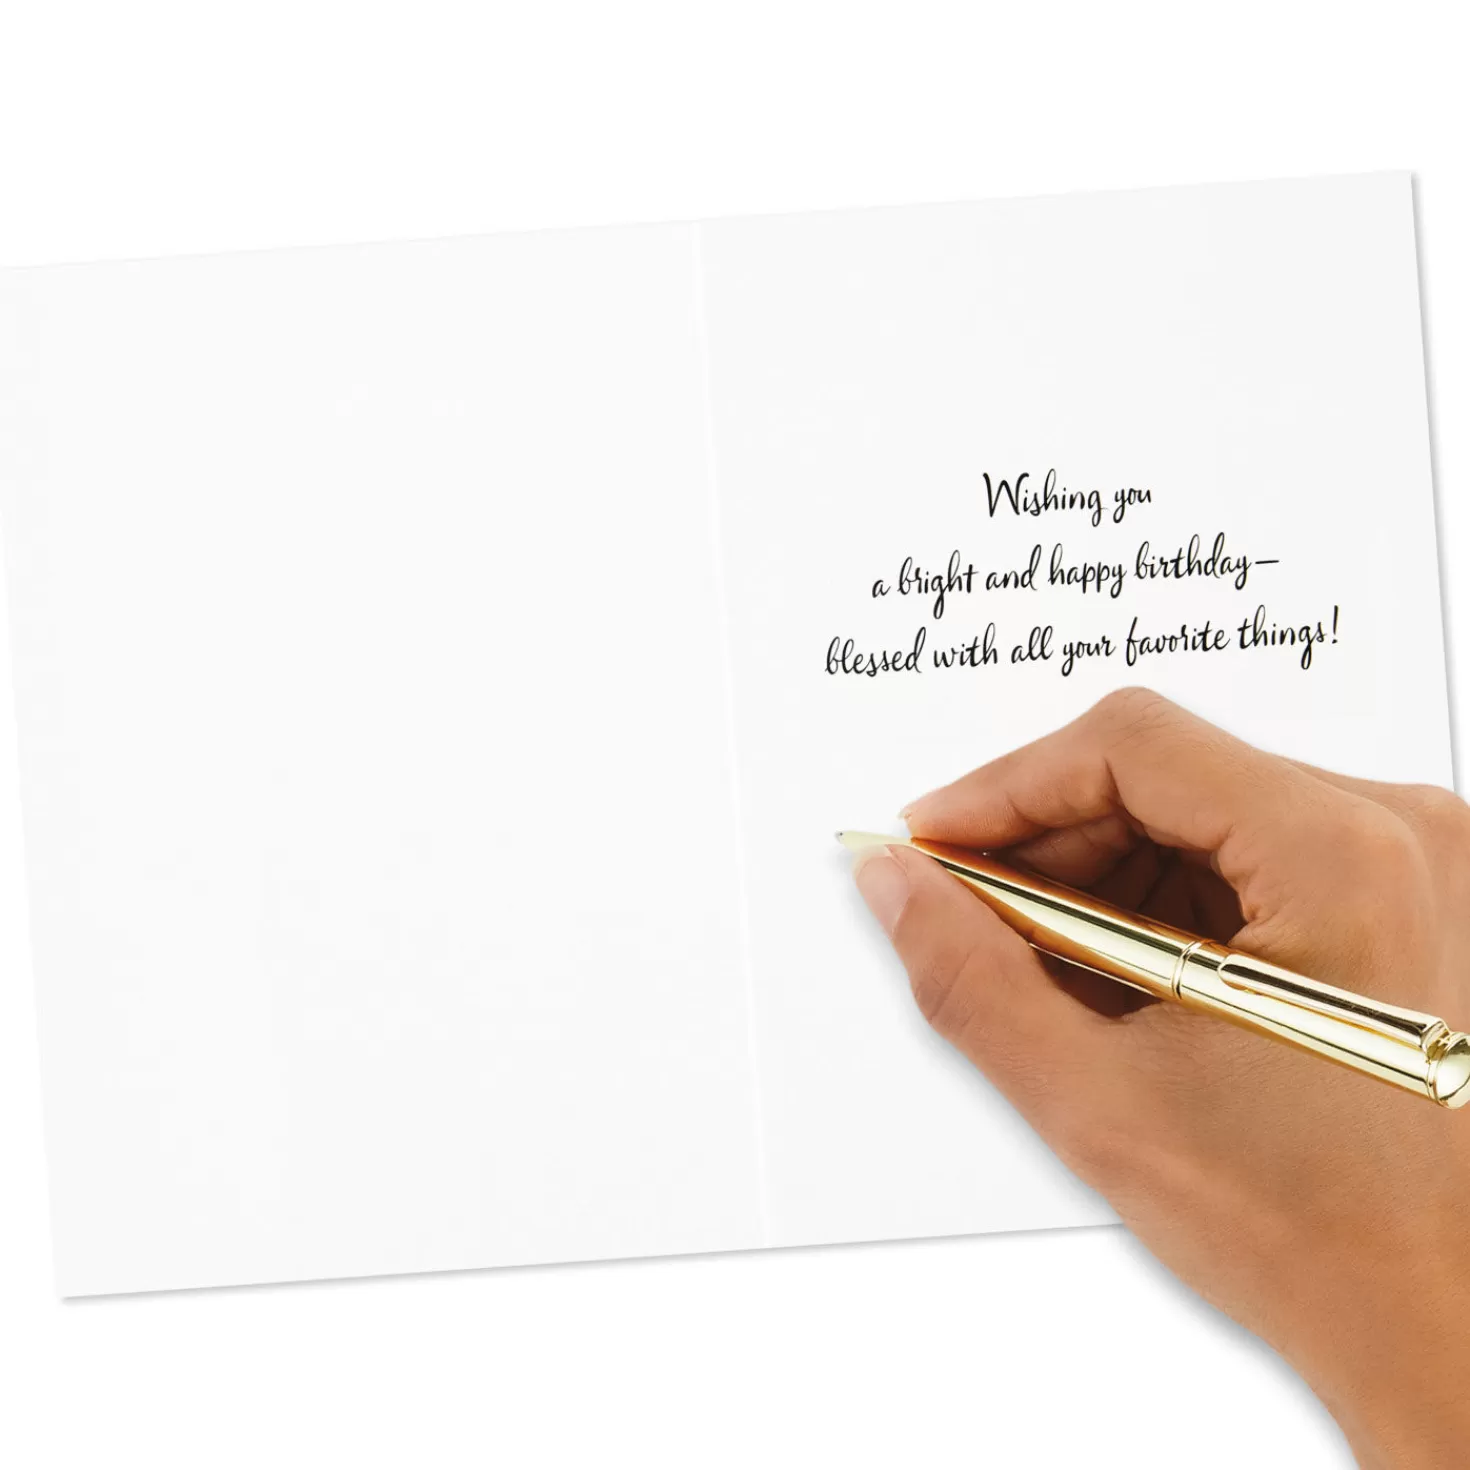 Wishing you
a bright and happy birthday—
blessed with all your favorite things!